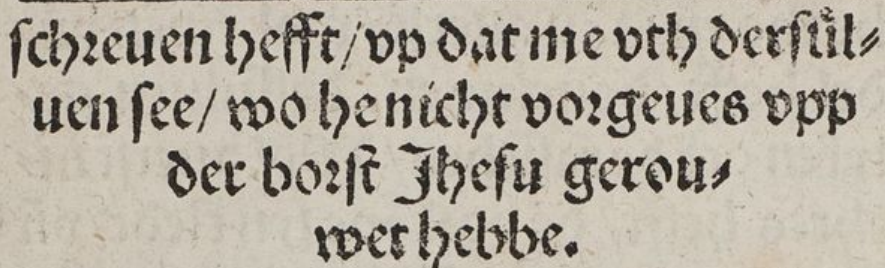 schreuen hefft/ vp dat me vth dersül⸗
uen see/ wo he nicht vorgeues vpp
der borst Jhesu gerou⸗
wet hebbe.